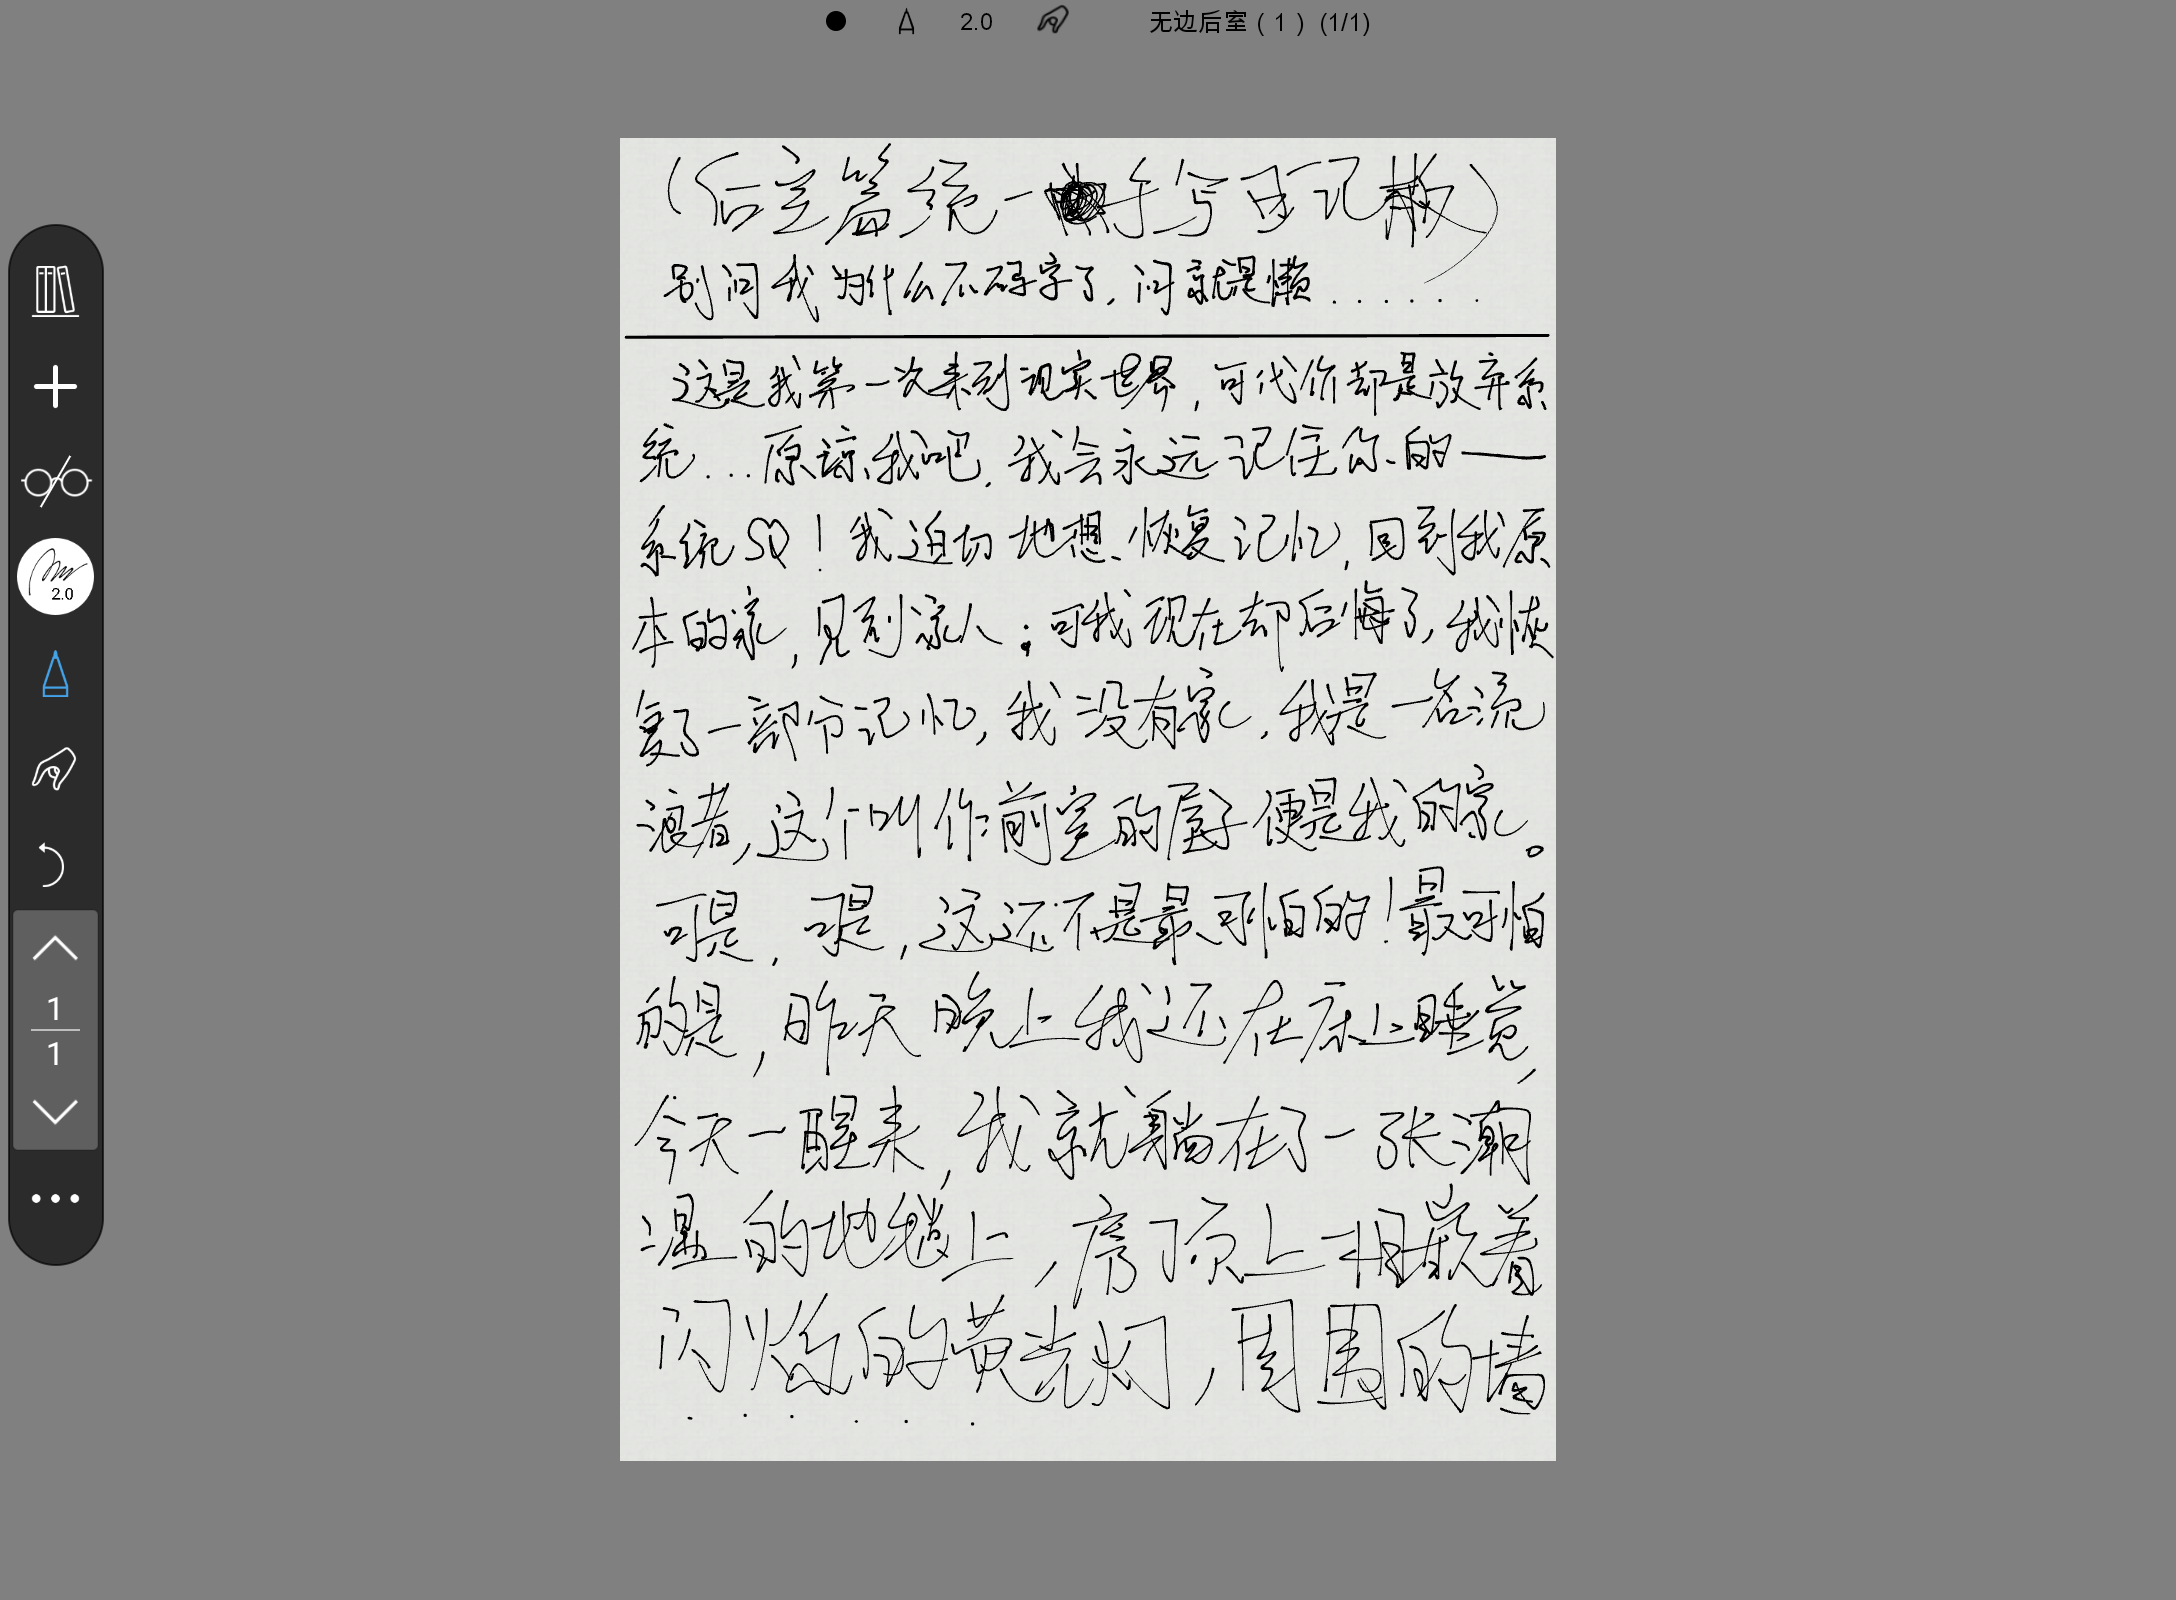 2.0 无边后室（1）(1/1)
（后室篇统一手写日记版）
别问我为什么不码字了，问就是懒......
这是我第一次来到现实世界，可代价却是放弃系
统...原谅我吧，我会永远记住你的——
系统SQ！我迫切地想恢复记忆，回到我原
本的家，见到家人；可我现在却后悔了，我恢
复了一部分记忆，我没有家，我是一名流
浪者，这个叫作前室的屋子便是我的家。
可是，可是，这还不是最可怕的！最可怕
的是，昨天晚上我还在床上睡觉，
今天一醒来，我就躺在了一张潮
湿的地毯上，房顶上相嵌着
闪烁的黄光灯，周围的墙
.......
2.0
1
1